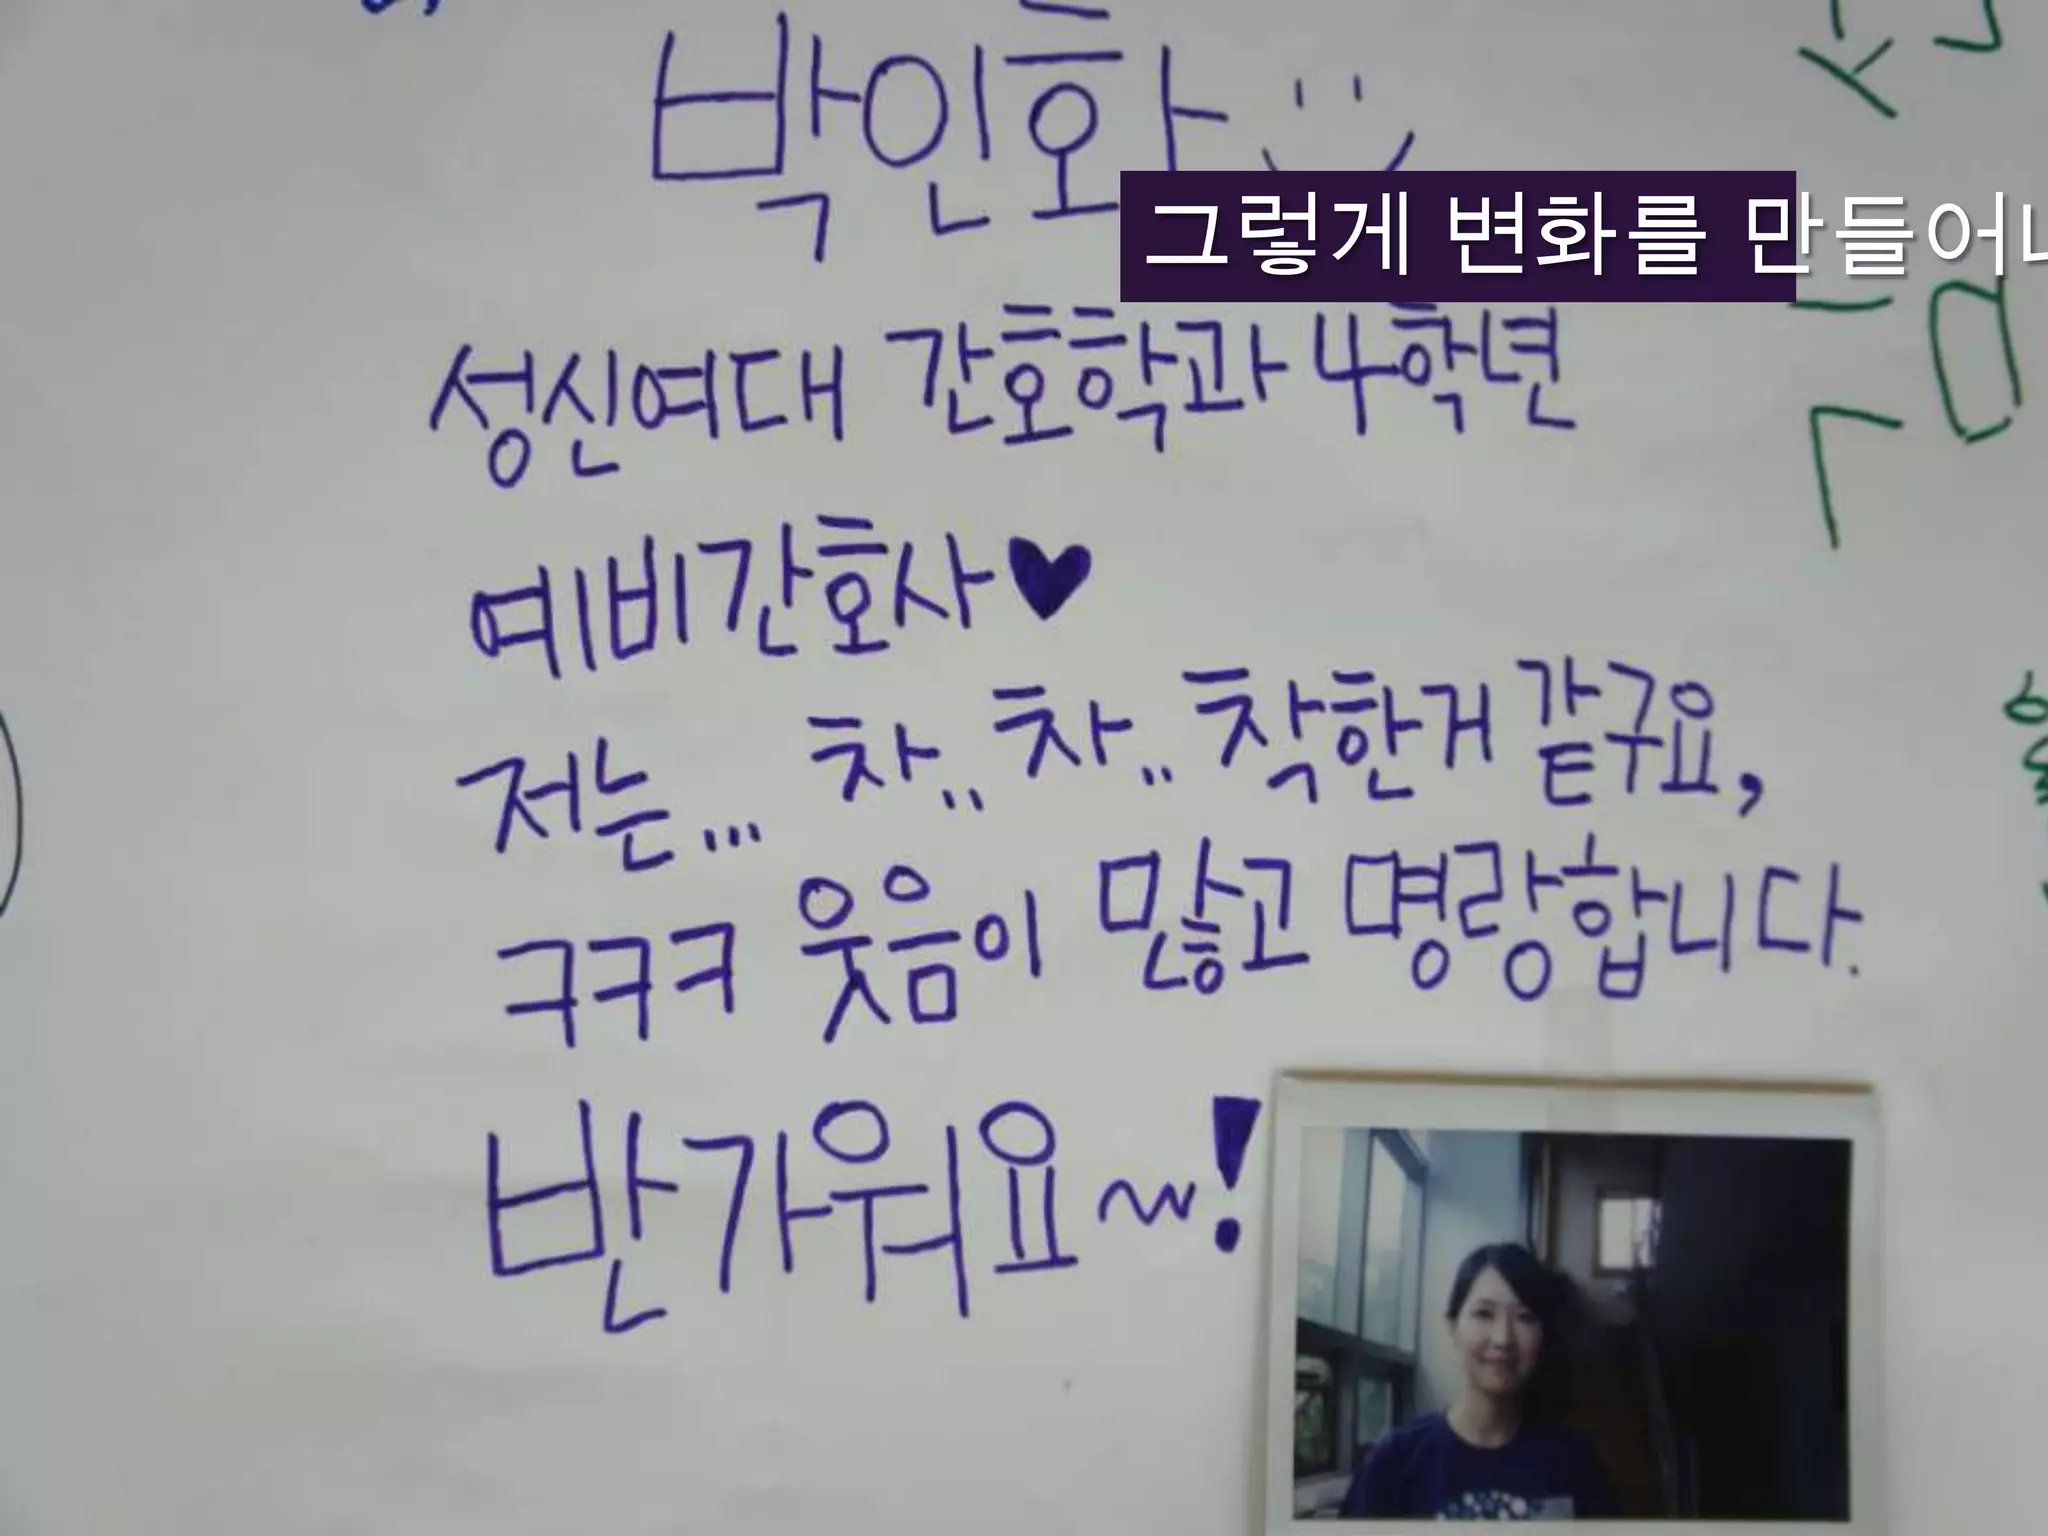 박인화
그렇게 변화를 만들어
성신여대 간호학과 4학년
예비간호사♥
저는... 차.. 차.. 착한거 같구요,
ㅋㅋㅋ 웃음이 많고 명랑합니다.
반가워요~!